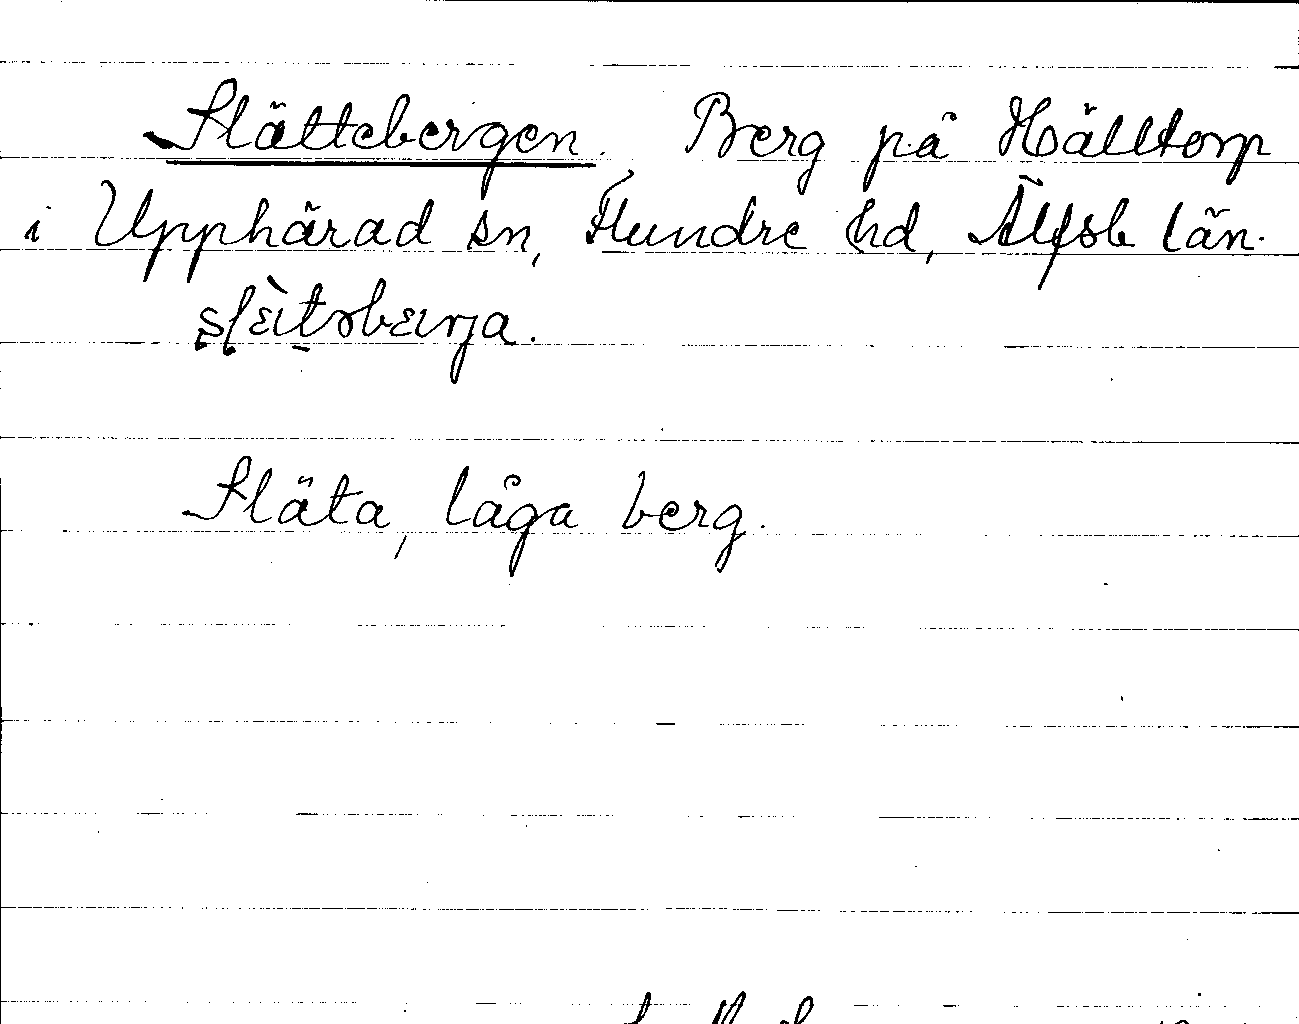 Slättebergen. Berg på Hälltorp
i Upphärad sn, Flundre hd, Älfsb län.
Släta, låga berg.